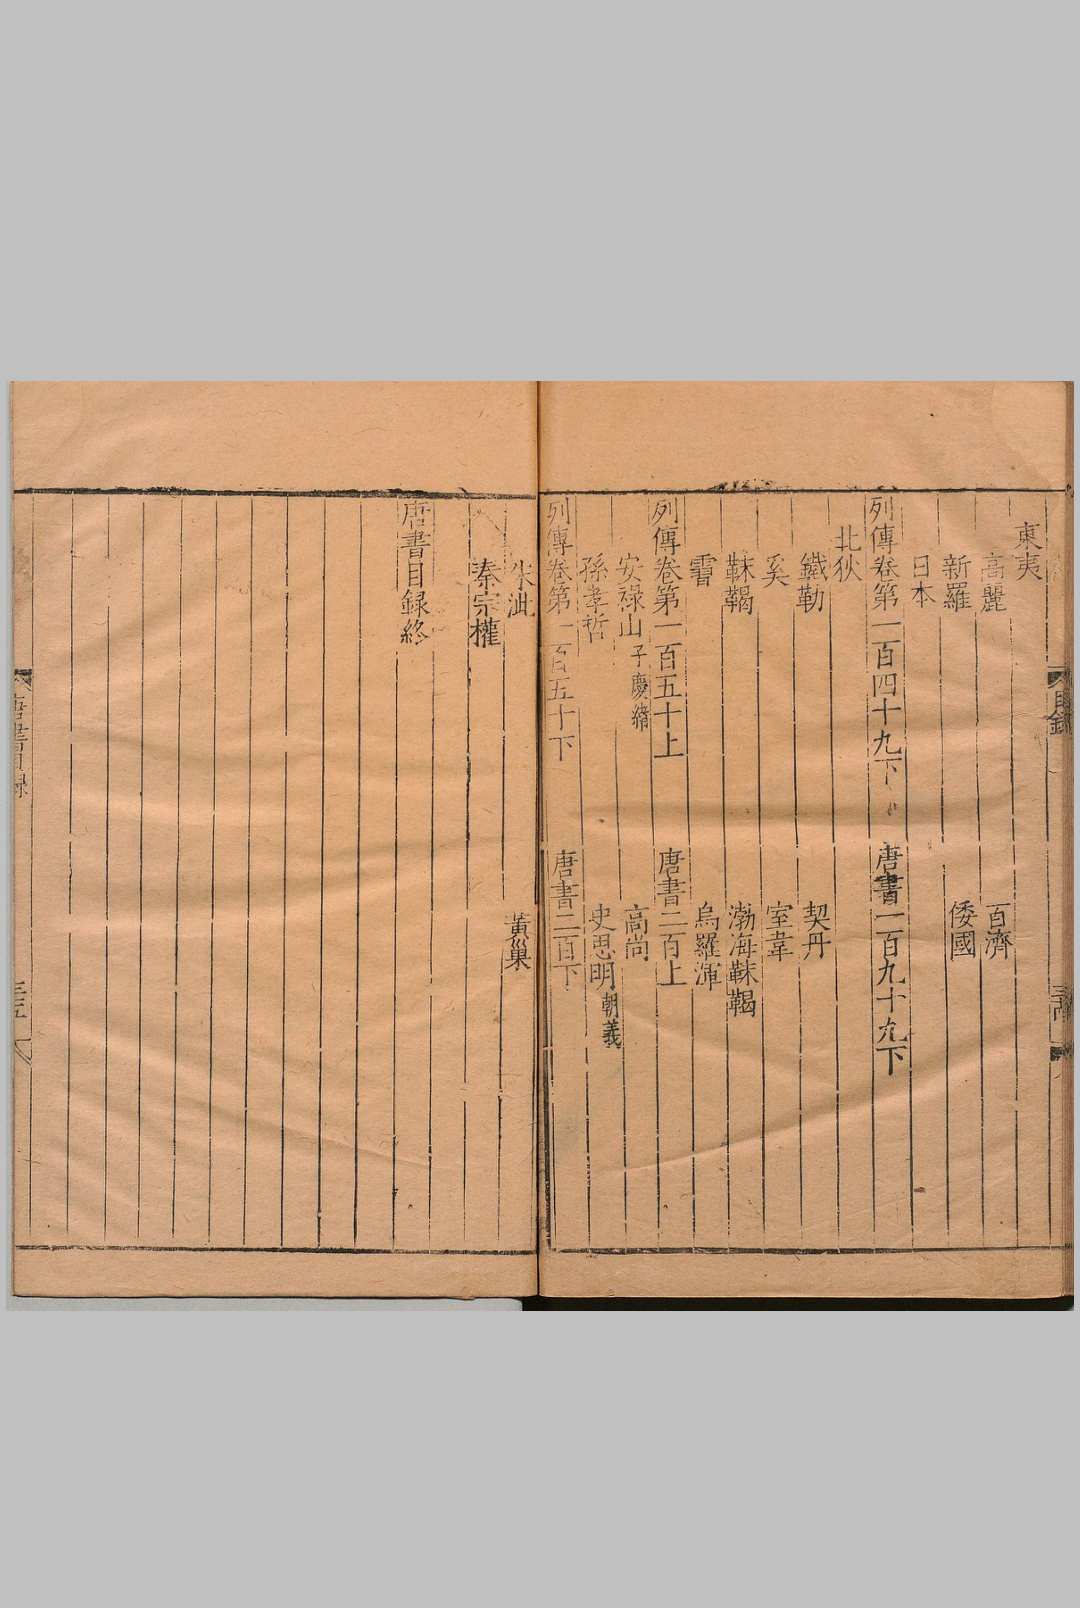 東夷
高麗　百濟
新羅　倭國
日本
列傳卷第一百四十九下　唐書一百九十九下
北狄
鐵勒　契丹
奚　室韋
靺鞨　渤海靺鞨
霫　烏羅渾
列傳卷第一百五十上　唐書二百上
安祿山子慶緒　高尚
孫孝哲　史思明朝義
列傳卷第一百五十下　唐書二百下
朱泚　黃巢
秦宗權
唐書目録終
唐書目録